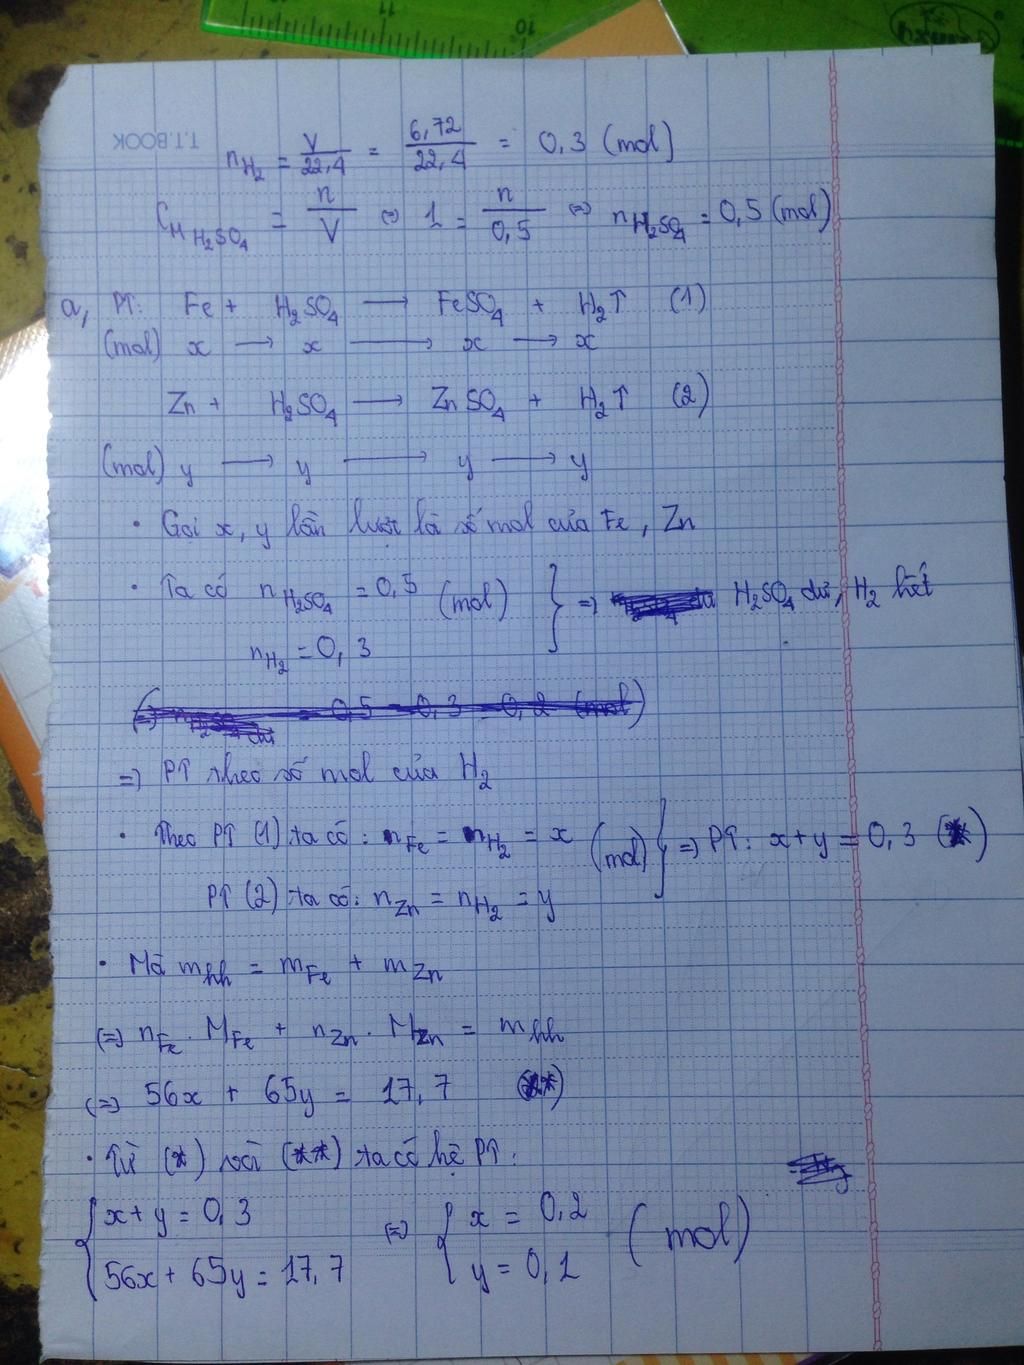 T.T.BOOK
n_H₂ = V/22,4 = 6,72/22,4 = 0,3 (mol)
C_M H₂SO₄ = n/V ⇔ 1 = n/0,5 ⇒ n_H₂SO₄ = 0,5 (mol)
a, PT: Fe + H₂SO₄ → FeSO₄ + H₂↑ (1)
(mol) x → x → x → x
Zn + H₂SO₄ → ZnSO₄ + H₂↑ (2)
(mol) y → y → y → y
• Gọi x, y lần lượt là số mol của Fe, Zn
• Ta có n_H₂SO₄ = 0,5 (mol) } ⇒ H₂SO₄ dư, H₂ hết
n_H₂ = 0,3
0,5 - 0,3 = 0,2 (mol)
⇒ PT theo số mol của H₂
• Theo PT (1) ta có: n_Fe = n_H₂ = x (mol) } ⇒ PT: x + y = 0,3 (*)
PT (2) ta có: n_Zn = n_H₂ = y
• Mà m_hh = m_Fe + m_Zn
⇔ n_Fe . M_Fe + n_Zn . M_Zn = m_hh
⇔ 56x + 65y = 17,7 (**)
• Từ (*) với (**) ta có hệ PT:
{ x + y = 0,3 ⇔ { x = 0,2 (mol)
56x + 65y = 17,7 y = 0,1